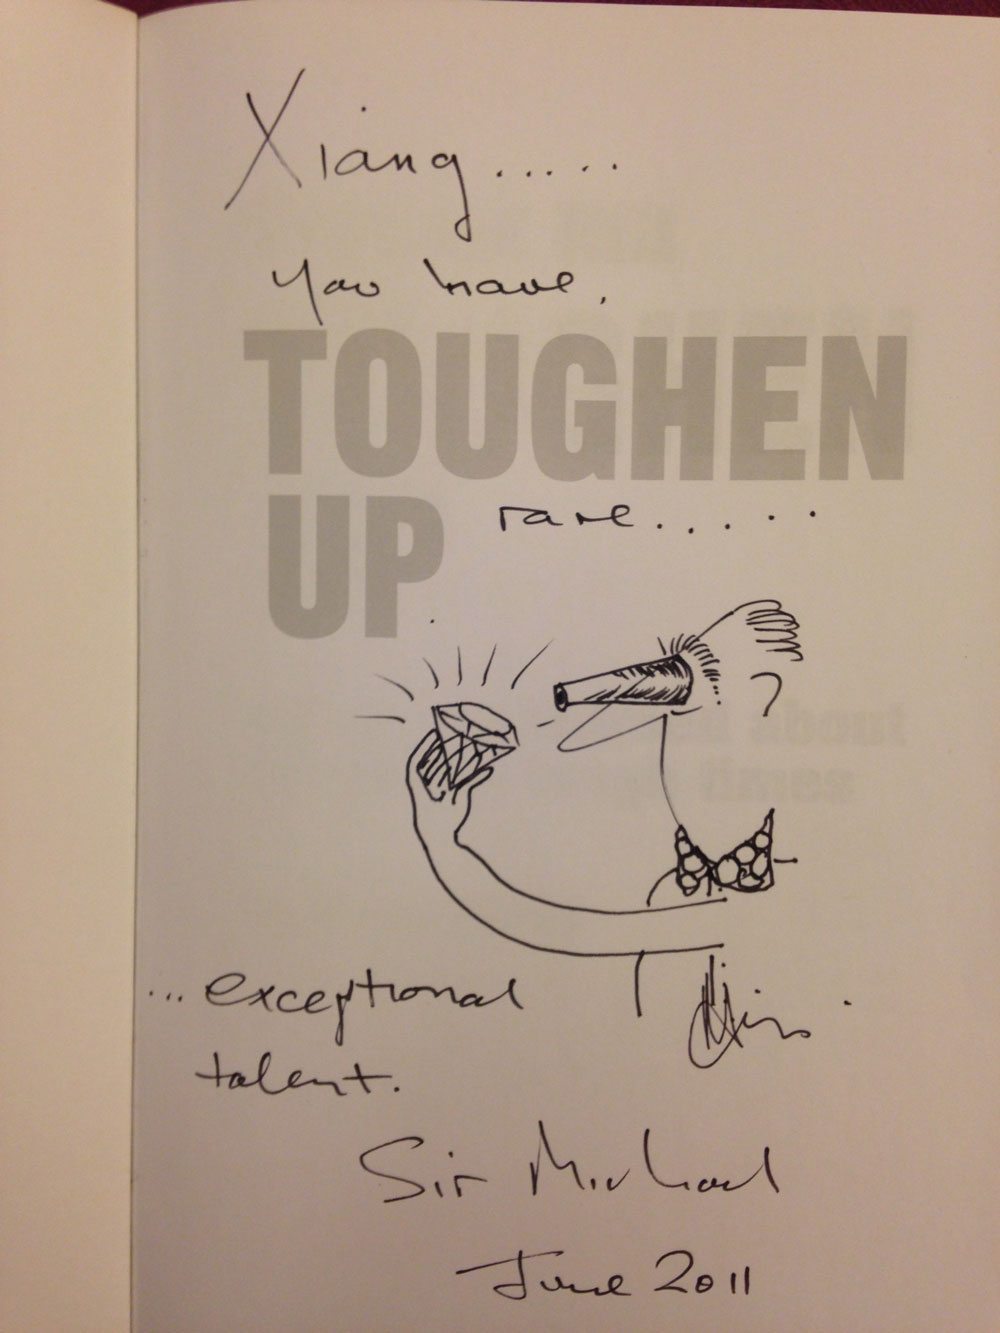 Xiang.....
you have,
TOUGHEN
UP
rare.....
...exceptional
talent.
Sir Michael
June 2011